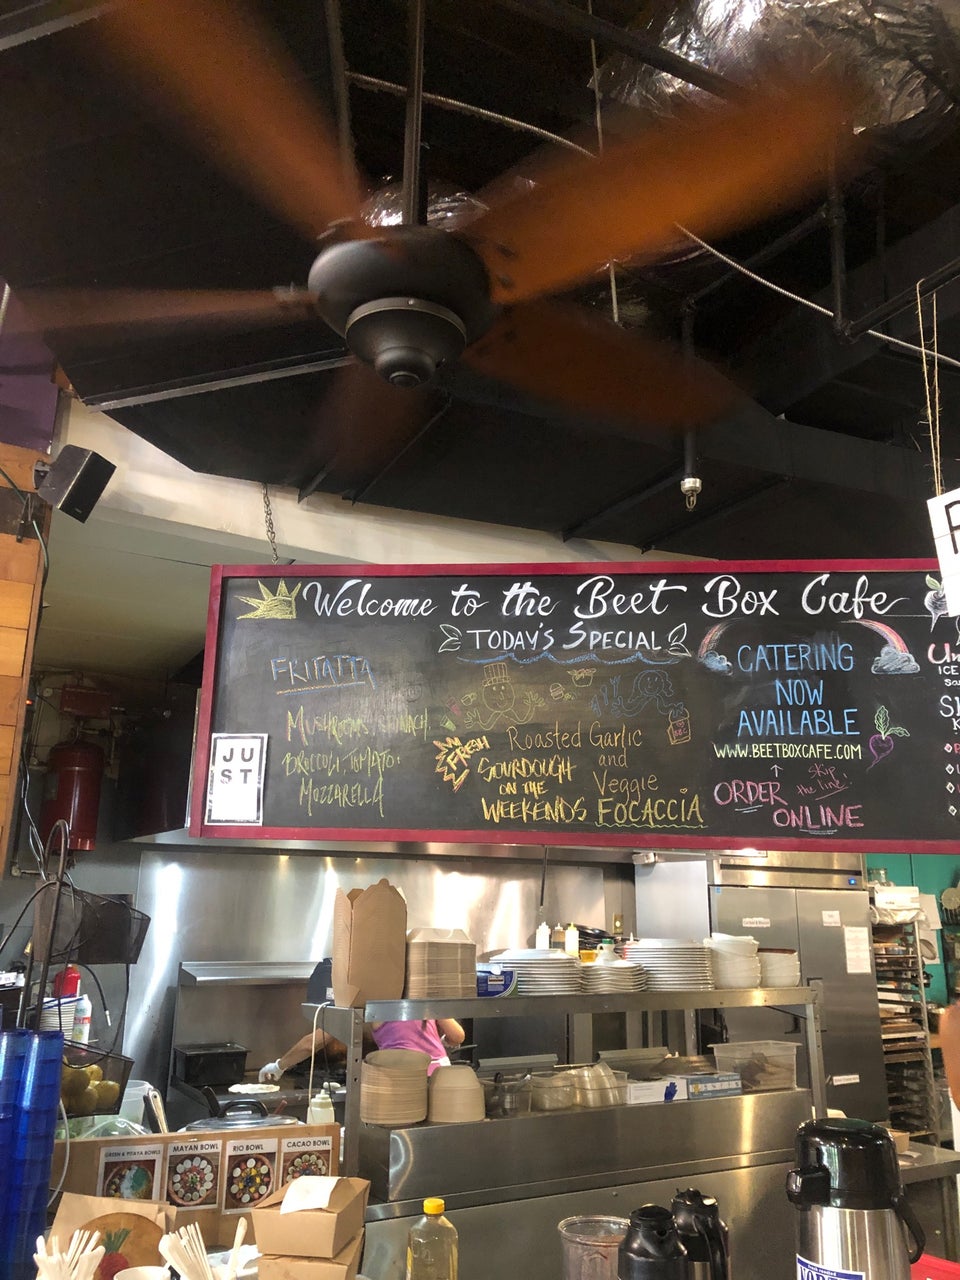 Welcome to the Beet Box Cafe
TODAY'S SPECIAL
FRITATTA
MUSHROOM, SPINACH,
BROCCOLI, TOMATO,
MOZZARELLA
FRESH
SOURDOUGH
ON THE
WEEKENDS
Roasted Garlic
and
Veggie
FOCACCIA
CATERING
NOW
AVAILABLE
WWW.BEETBOXCAFE.COM
Skip
the line!
ORDER
ONLINE
ICE
JU
ST
GREEN & PITAYA BOWLS
MAYAN BOWL
RIO BOWL
CACAO BOWL